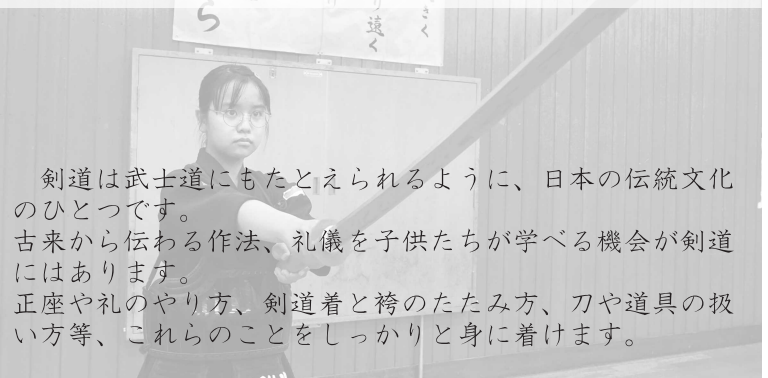 ら
り遠く
さく
　剣道は武士道にもたとえられるように、日本の伝統文化
のひとつです。
古来から伝わる作法、礼儀を子供たちが学べる機会が剣道
にはあります。
正座や礼のやり方、剣道着と袴のたたみ方、刀や道具の扱
い方等、これらのことをしっかりと身に着けます。